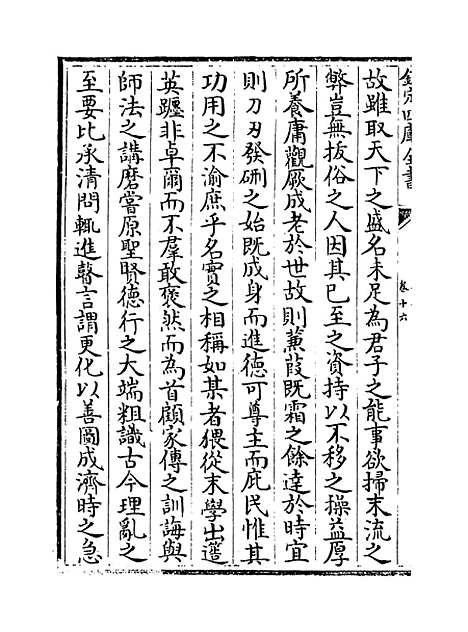 欽定四庫全書
卷十六
故雖取天下之盛名未足為君子之能事欲掃末流之
弊豈無拔俗之人因其已至之資持以不移之操益厚
所養庸觀厥成老於世故則蒹葭既霜之餘達於時宜
則刀刃發硎之始既成身而進德可尊主而庇民惟其
功用之不渝庶乎名實之相稱如某者猥從末學出遰
英躔非卓爾而不羣敢褎然而為首顧家傳之訓誨與
師法之講磨嘗原聖賢德行之大端粗識古今理亂之
至要比承清問輒進瞽言謂更化以善圖成濟時之急